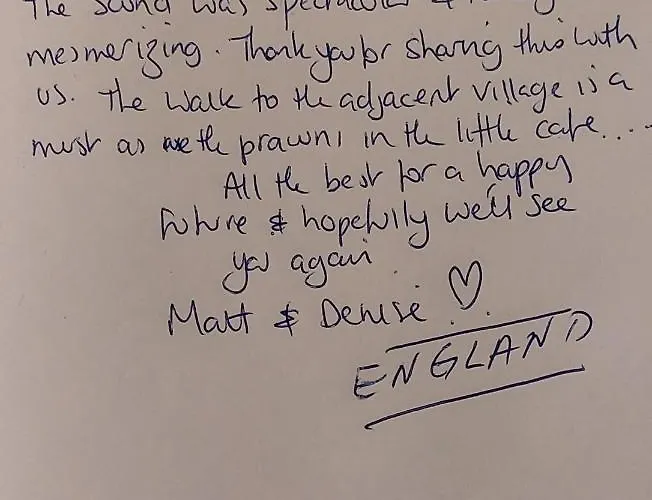 The sound was spectacular &
mesmerizing. Thank you for sharing this with
us. The walk to the adjacent village is a
must as are the prawns in the little cafe....
All the best for a happy
future & hopefully we'll see
you again
Matt & Denise ♡
ENGLAND